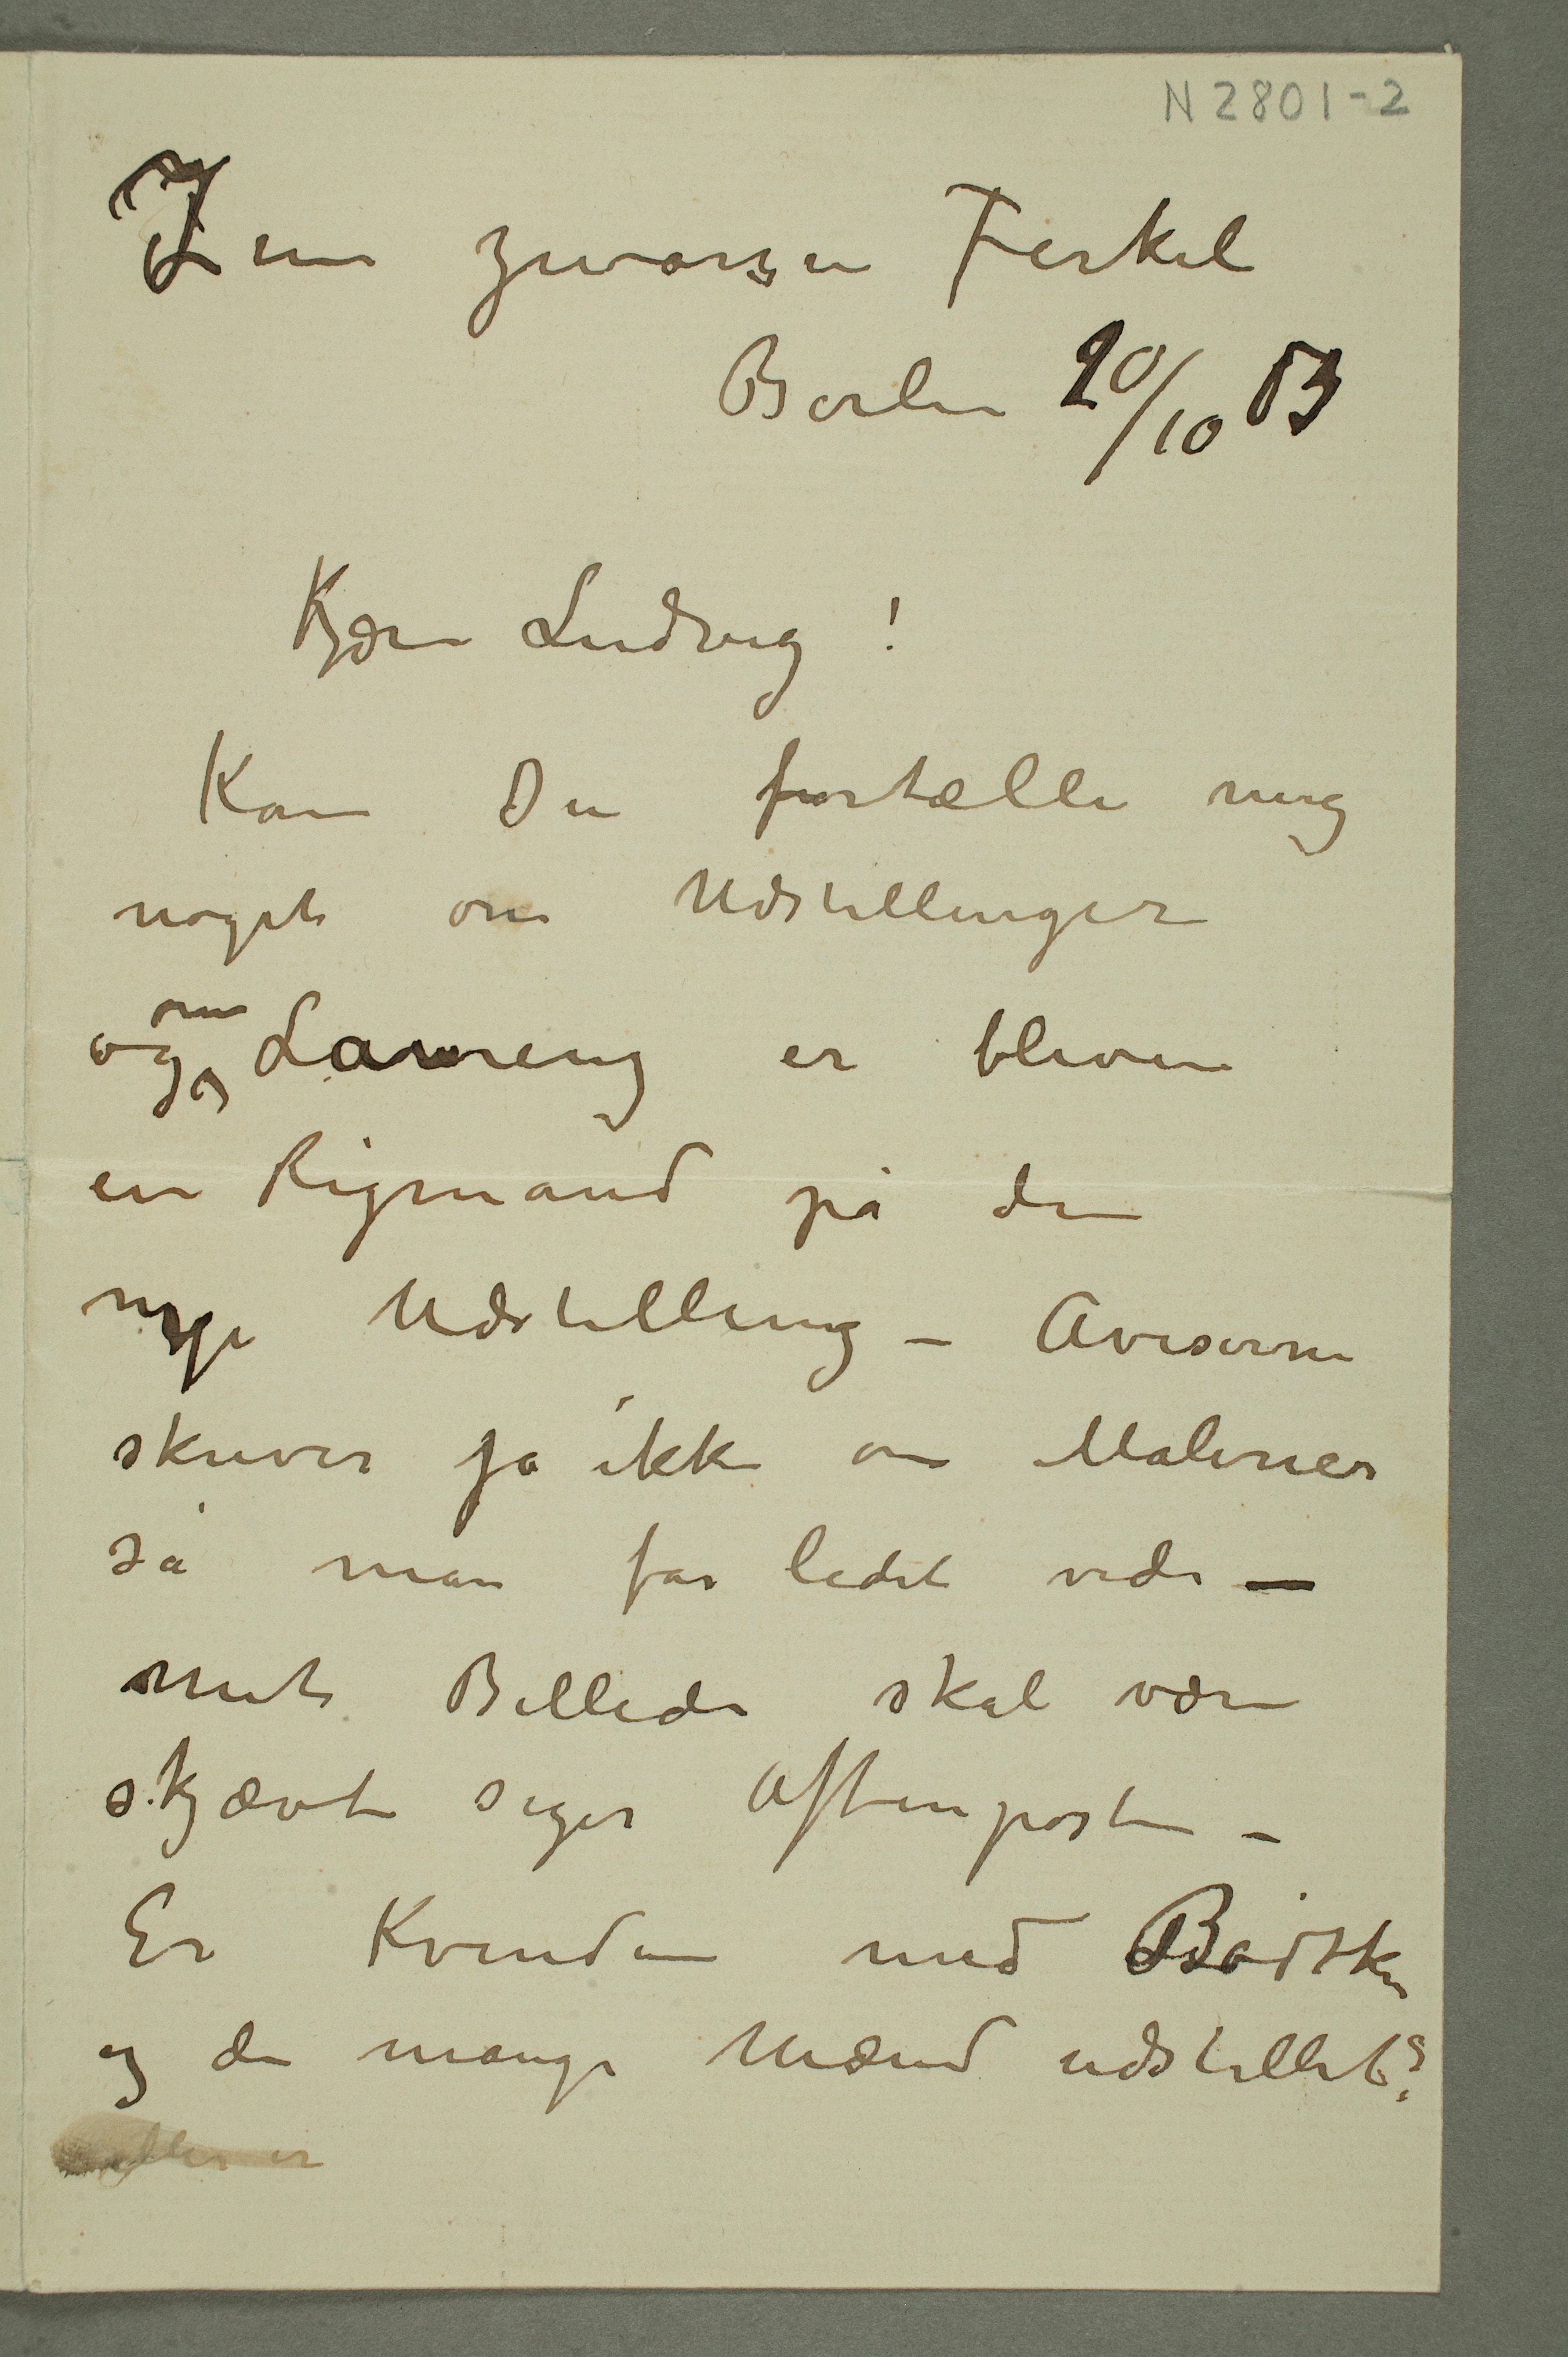 N 2801-2
Zum zwarzen Ferkel
Berlin 20/10 03
Kjære Ludvig!
Kan Du fortælle mig
noget om Udstillinger
og om Laureng er bleven
en Rigmand på den
nye Udstilling – Aviserne
skriver ja ikke om Malerier
så man får lidet vide –
mit Billede skal være
skjævt siger Aftenposten –
Er Kvinden med
og de mange Mænd udstillet?
eller er